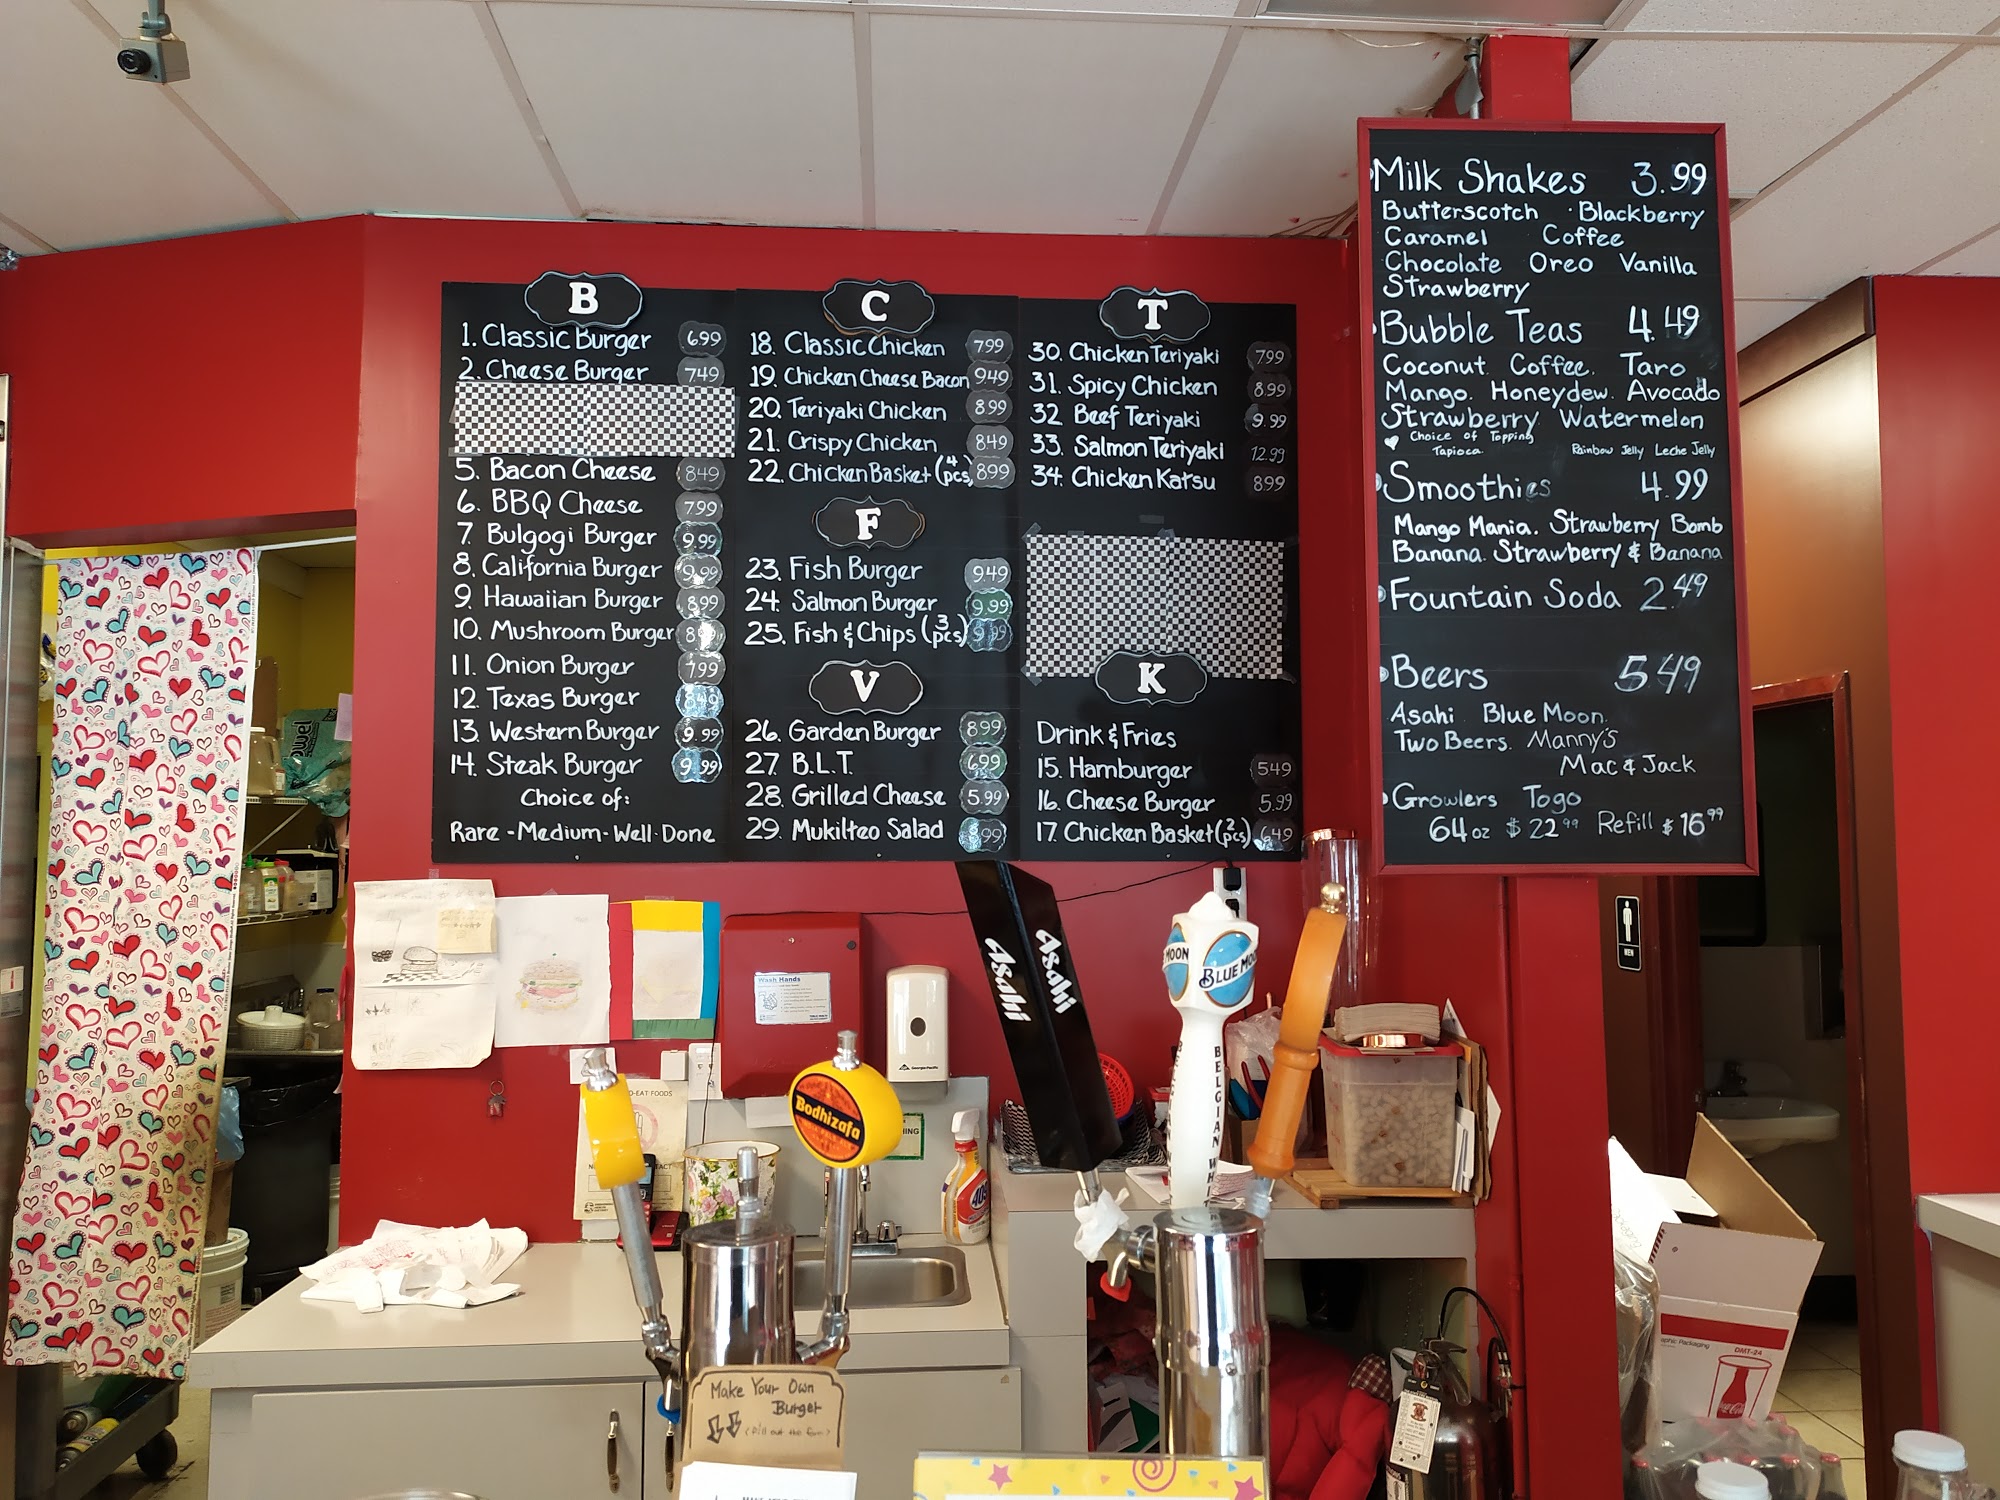 B
1. Classic Burger 6.99
2. Cheese Burger 7.49
5. Bacon Cheese 8.49
6. BBQ Cheese 7.99
7. Bulgogi Burger 9.99
8. California Burger 9.99
9. Hawaiian Burger 8.99
10. Mushroom Burger
11. Onion Burger 7.99
12. Texas Burger 8.49
13. Western Burger 9.99
14. Steak Burger 9.99
Choice of:
Rare - Medium - Well-Done
C
18. Classic Chicken 7.99
19. Chicken Cheese Bacon 9.49
20. Teriyaki Chicken 8.99
21. Crispy Chicken 8.49
22. Chicken Basket (4 pcs) 8.99
F
23. Fish Burger 9.49
24. Salmon Burger 9.99
25. Fish & Chips (3 pcs) 9.99
V
26. Garden Burger 8.99
27. B.L.T. 6.99
28. Grilled Cheese 5.99
29. Mukilteo Salad
T
30. Chicken Teriyaki 7.99
31. Spicy Chicken 8.99
32. Beef Teriyaki 9.99
33. Salmon Teriyaki 12.99
34. Chicken Katsu 8.99
K
Drink & Fries
15. Hamburger 5.49
16. Cheese Burger 5.99
17. Chicken Basket (2 pcs) 6.49
Milk Shakes 3.99
Butterscotch Blackberry
Caramel Coffee
Chocolate Oreo Vanilla
Strawberry
Bubble Teas 4.49
Coconut. Coffee. Taro
Mango. Honeydew. Avocado
Strawberry Watermelon
Choice of Topping
Tapioca Rainbow Jelly Leche Jelly
Smoothies 4.99
Mango Mania. Strawberry Bomb
Banana. Strawberry & Banana
Fountain Soda 2.49
Beers 5.49
Asahi Blue Moon.
Two Beers. Manny's
Mac & Jack
Growlers Togo
64 oz $22.99 Refill $16.99
MEN
Wash Hands
Georgia-Pacific
Asahi
Asahi
MOON
BLUE MOON
BELGIAN WH
Bodhizafa
409
Make Your Own
Burger
(fill out the form)
DMT-24
Coca-Cola